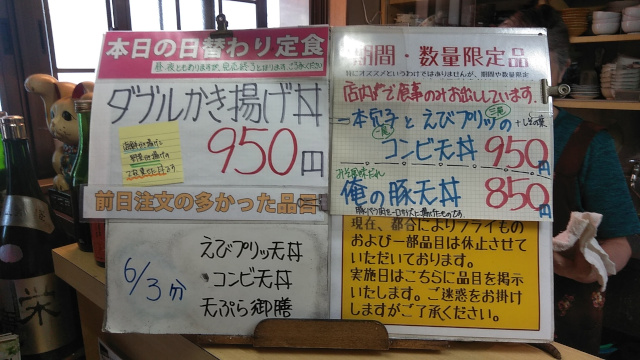 本日の日替わり定食
昼・夜ともありますが、完売終了とはります。ご了承ください
ダブルかき揚げ丼
海鮮かき揚げと
野菜かき揚げの
2枚のせ丼です
950円
前日注文の多かった品目
6/3分
えびプリッ天丼
・コンビ天丼
天ぷら御膳
期間・数量限定品
特にオススメというわけではありませんが、期間や数量限定
店内まで食事のみお出ししています。
一本穴子とえびプリッの
コンビ天丼 950円
俺の豚天丼 850円
現在、都合によりフライもの
および一部品目は休止させて
いただいております。
実施日はこちらに品目を掲示
いたします。ご迷惑をお掛け
しますがご了承ください。
栄